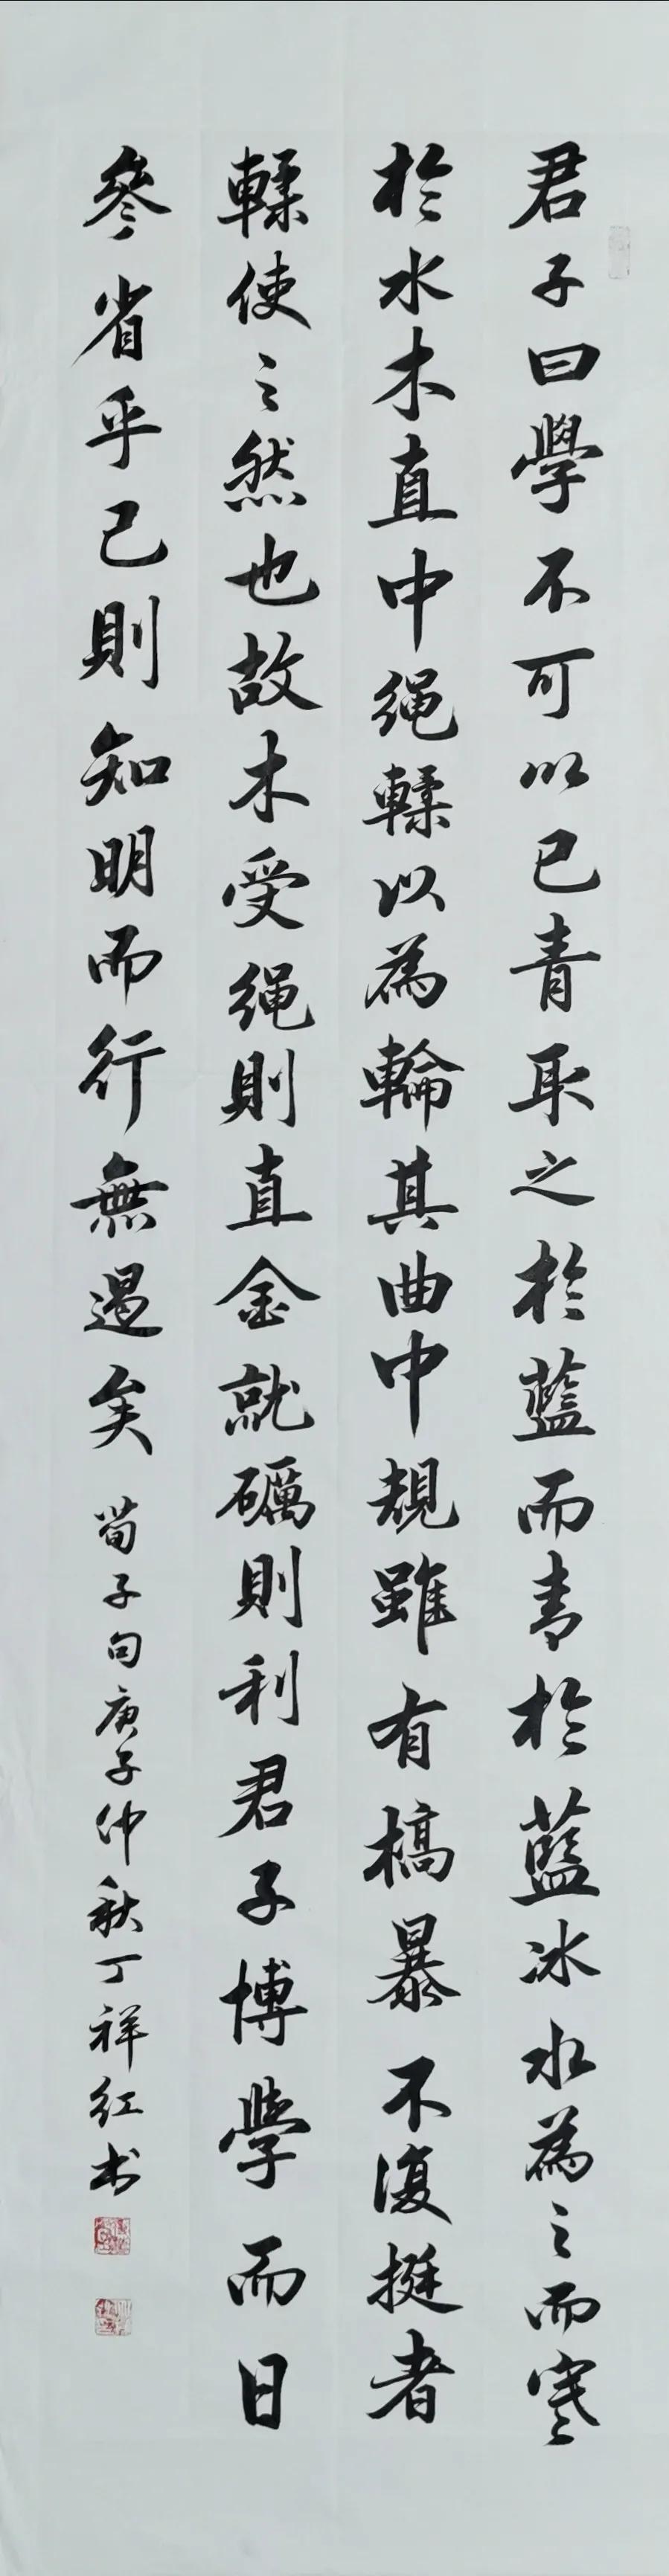 君子曰學不可以已青取之於藍而青於藍冰水為之而寒
於水木直中绳輮以為輪其曲中規雖有槁暴不復挺者
輮使之然也故木受绳則直金就礪則利君子博學而日
參省乎己則知明而行無過矣 荀子句庚子仲秋丁祥红书